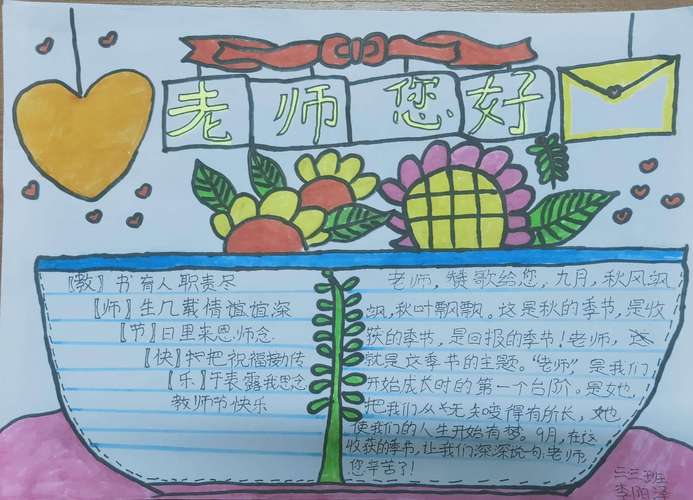 老师您好
【教】书育人职责尽
【师】生几载情谊谊深
【节】日里来恩师念
【快】把祝福捎传
【乐】于表露我思念
教师节快乐
老师,赞歌给您,九月,秋风飒
飒,秋叶飘飘。这是秋的季节,是收
获的季节,是回报的季节!老师,这
就是这季节的主题。“老师”,是我们
开始成长时的第一个台阶。是她
把我们从无变得有所长,她
使我们的人生开始有梦。9月,在这
收获的季节,让我们深深说句:老师
您辛苦了!
三班
李阳泽